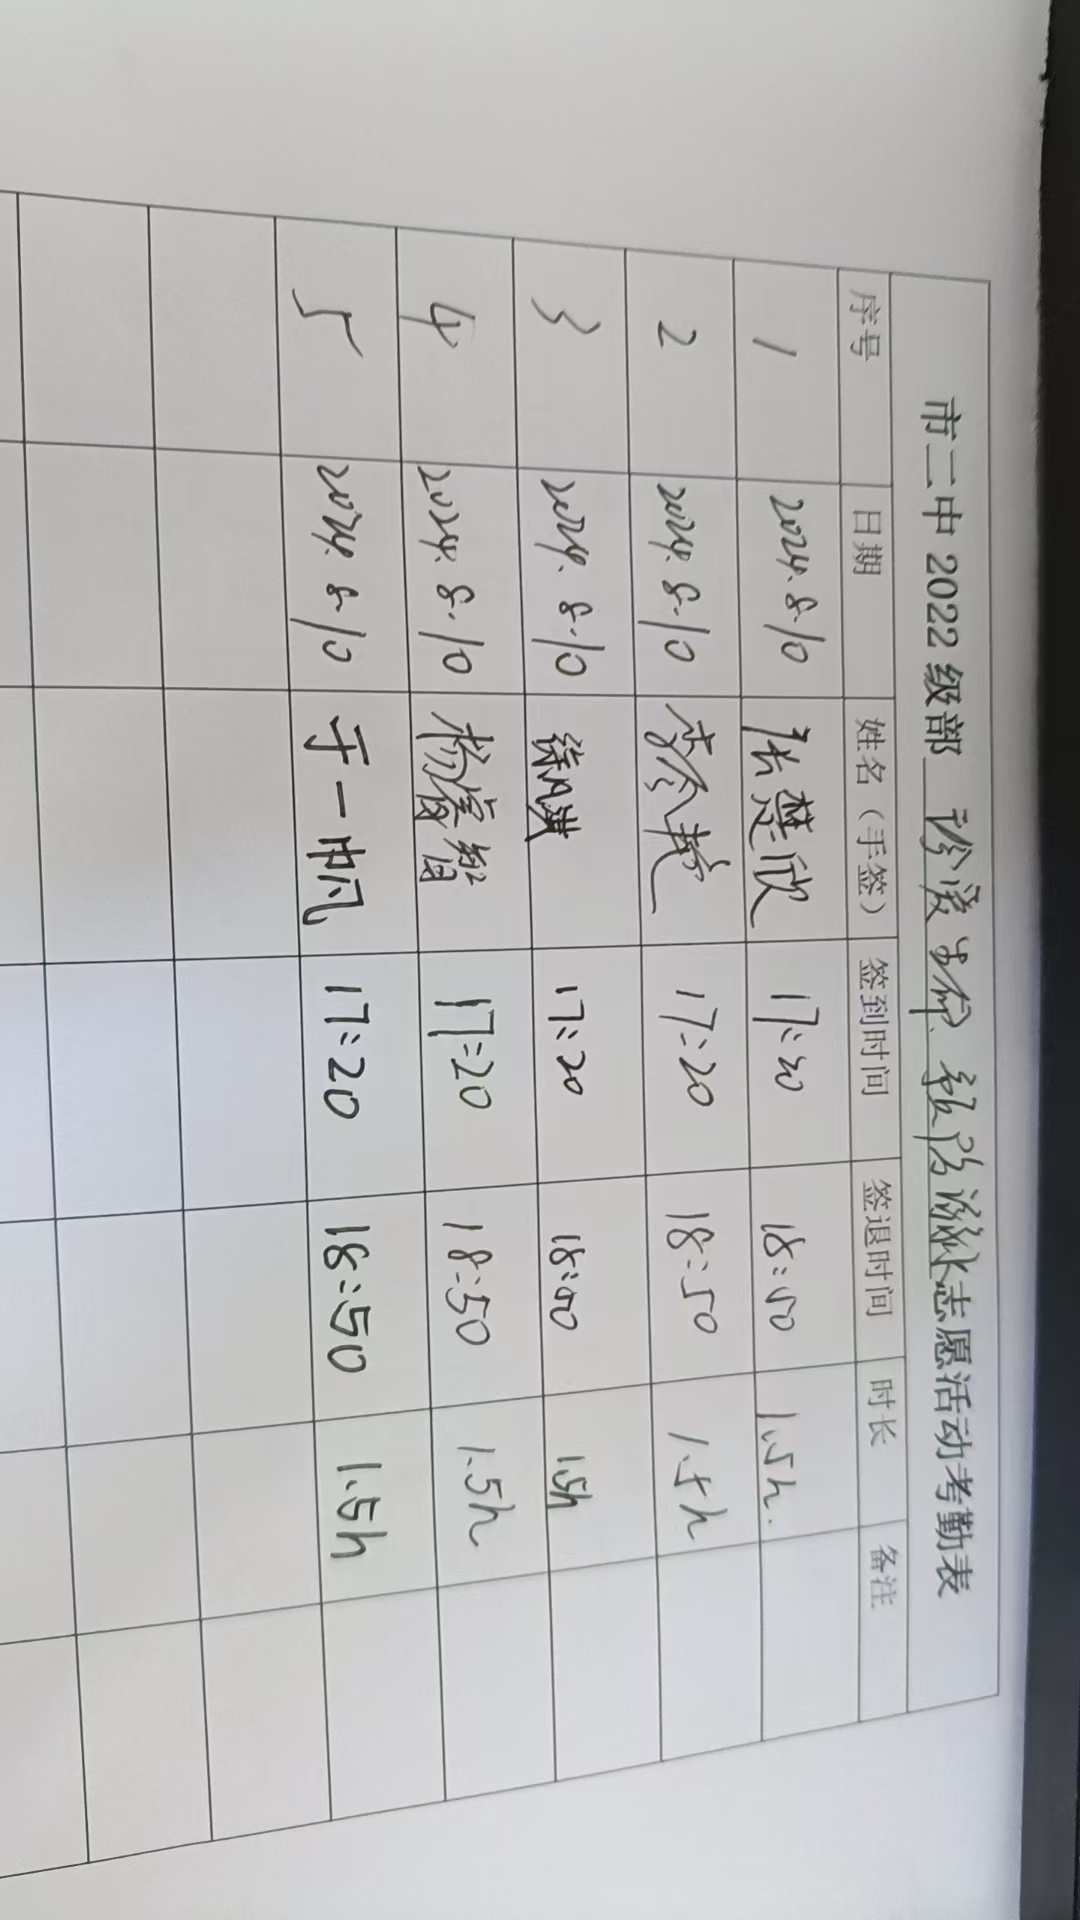 市二中2022级部 珍爱生命、预防溺水志愿活动考勤表
序号 日期 姓名（手签） 签到时间 签退时间 时长 备注
1 2024.8.10 张楚欣 17:20 18:50 1.5h.
2 2024.8.10 17:20 18:50 1.5h
3 2024.8.10 17:20 18:50 1.5h
4 2024.8.10 17:20 18:50 1.5h
5 2024.8.10 于一帆 17:20 18:50 1.5h